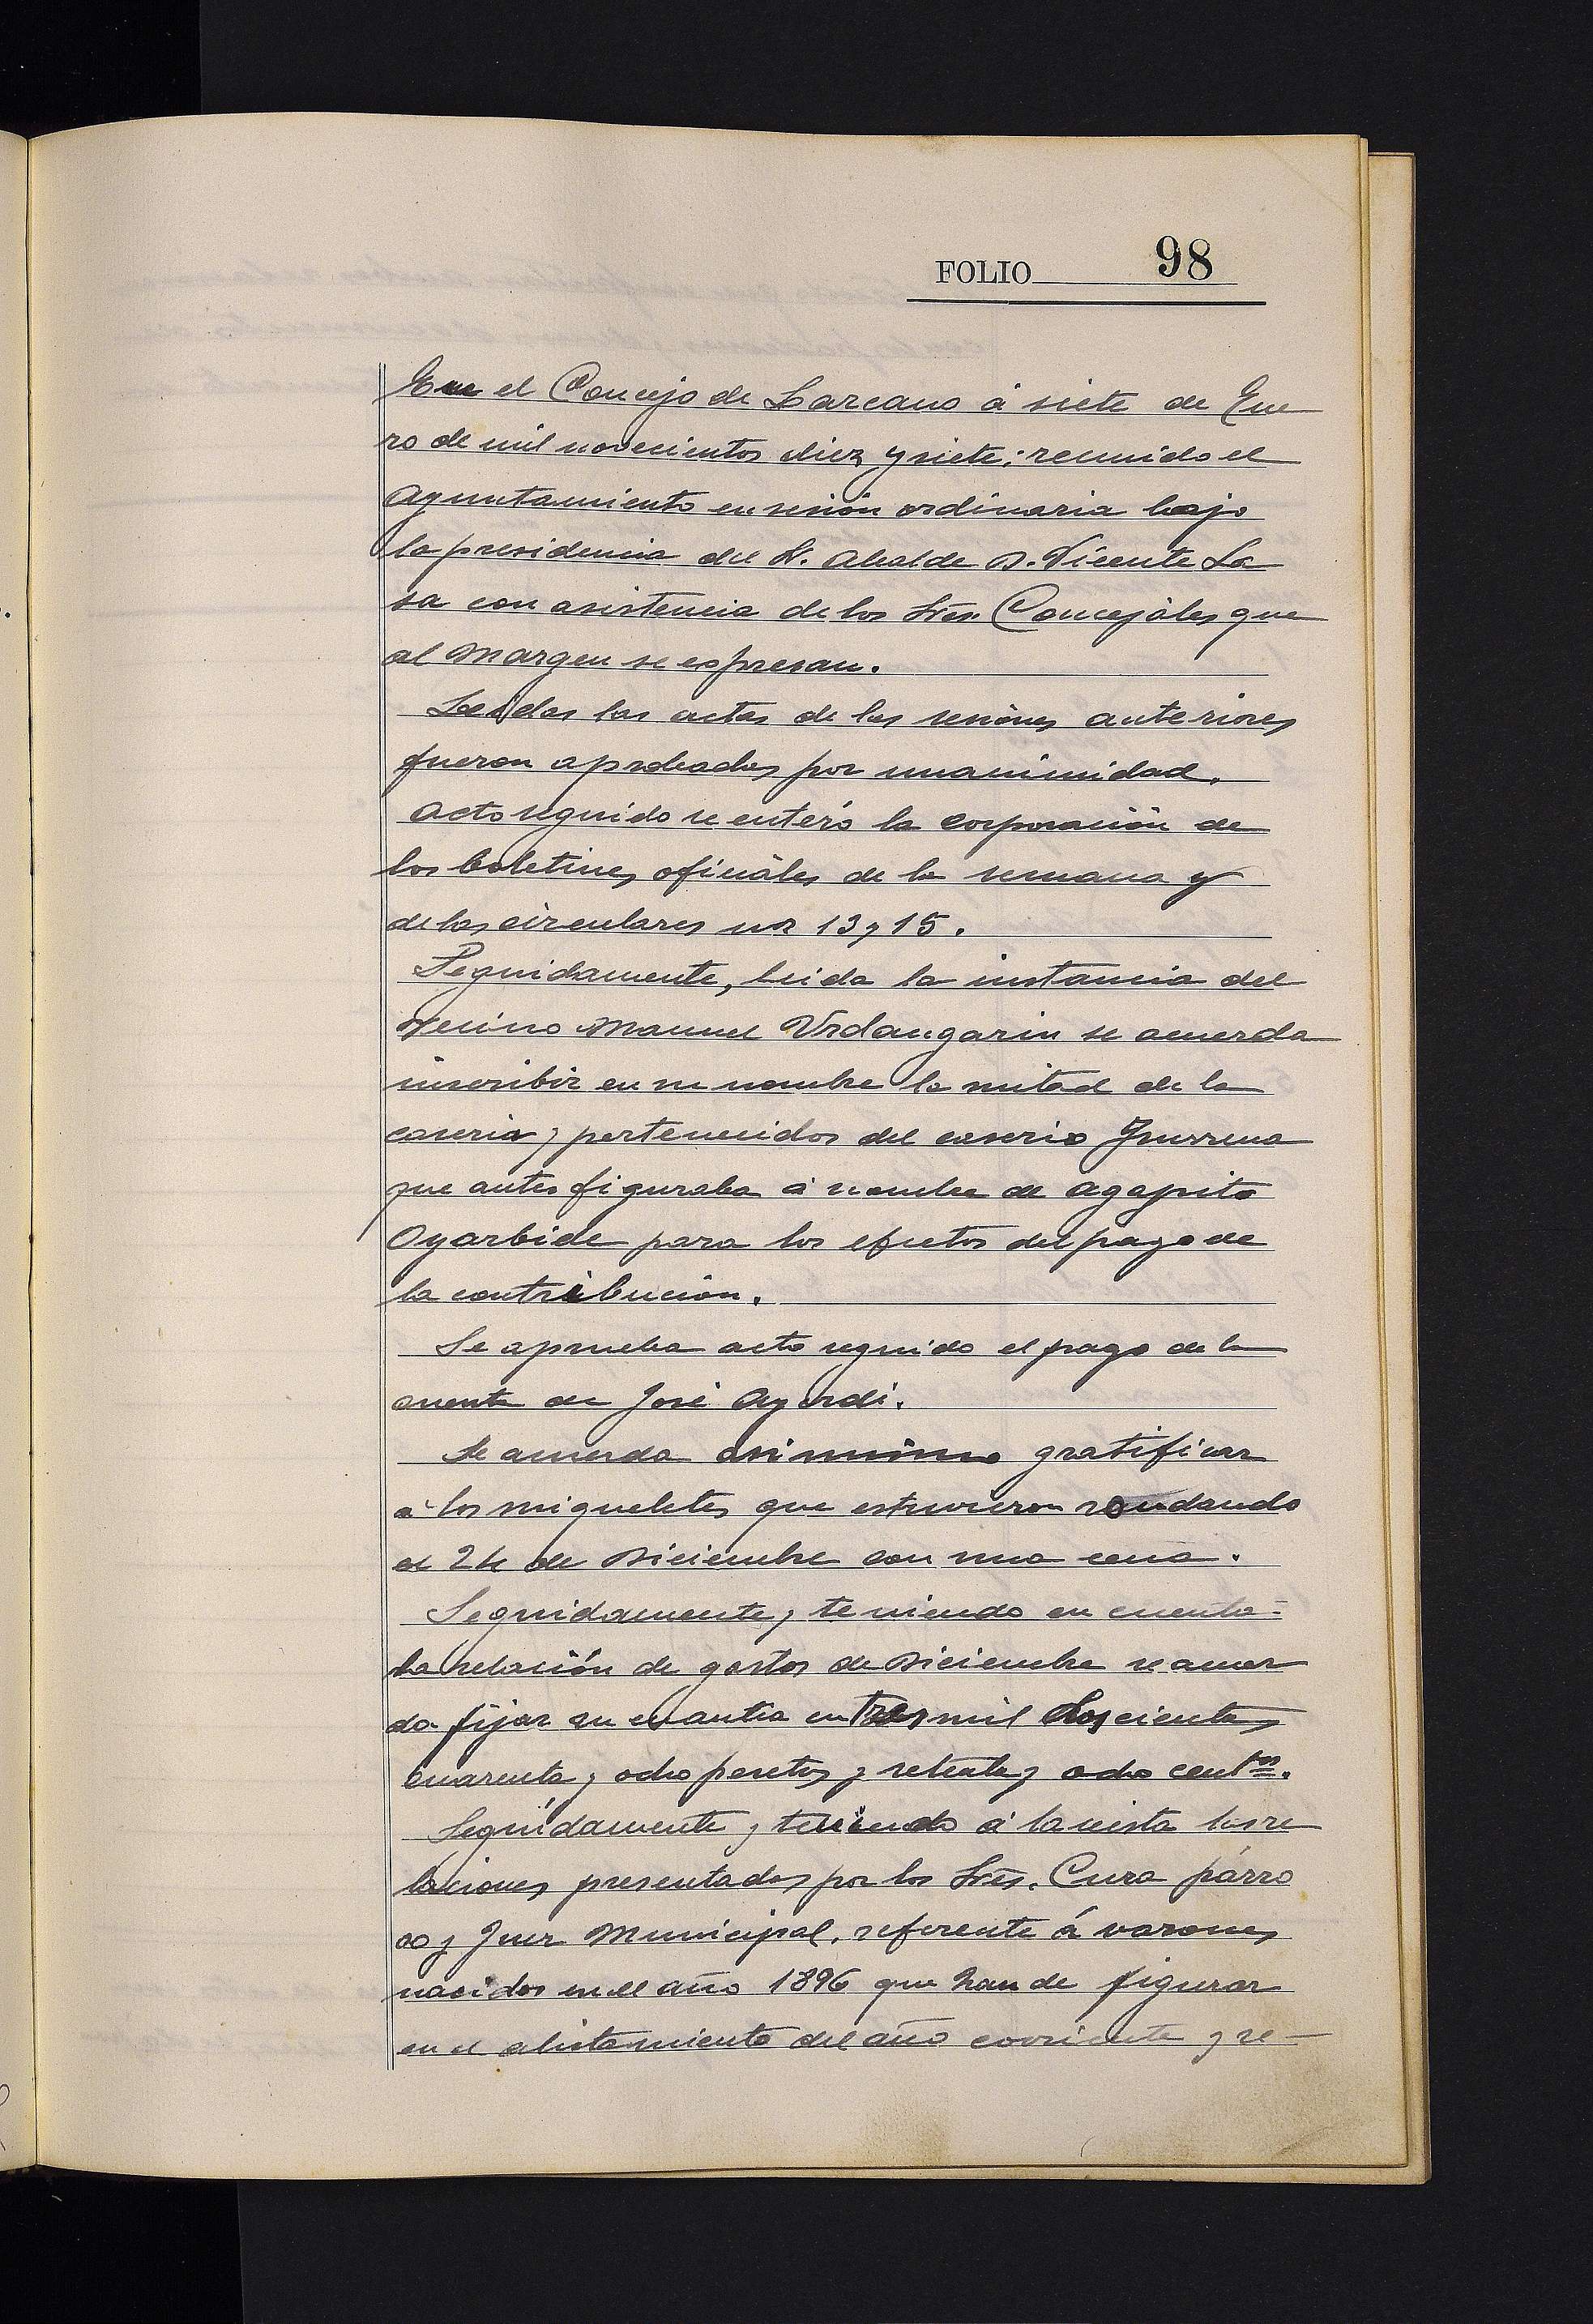 FOLIO 98
En el Concejo de Lazcano á siete de Ene
ro de mil novecientos diez y siete; reunido el
Ayuntamiento en sesión ordinaria bajo
la presidencia del Sr. Alcalde D. Vicente La
sa con asistencia de los Sres. Concejáles que
al margen se espresan.
Leidas las actas de las sesiones anteriores
fueron aprobadas por unanimidad.
Acto seguido se enteró la corporación de
los boletines oficiáles de la semana y
de las circulares nos 13 y 15.
Seguidamente, leida la instancia del
vecino Manuel Urdangarin se acuerda
inscribir en su nombre la mitad de la
caseria y pertenecidos del caserio
que antes figuraba á nombre de Agapito
Oyarbide para los efectos del pago de
la contribución.
Se aprueba acto seguido el pago de la
cuenta de José Ayerdi.
Se acuerda asi mismo gratificar
á los migueletes que estuvieron rondando
el 24 de Diciembre con una cena.
Seguidamente y teniendo en cuenta
la relación de gastos de Diciembre se acuer
da fijar su cuantia en tres mil doscientas
cuarenta y ocho pesetas y setenta y ocho centos.
Seguidamente y teniendo á la vista las re
laciones presentadas por los Sres. Cura párro
co y Juez Municipal, referente á varones
nacidos en el año 1896 que han de figurar
en el alistamiento del año corriente y re-